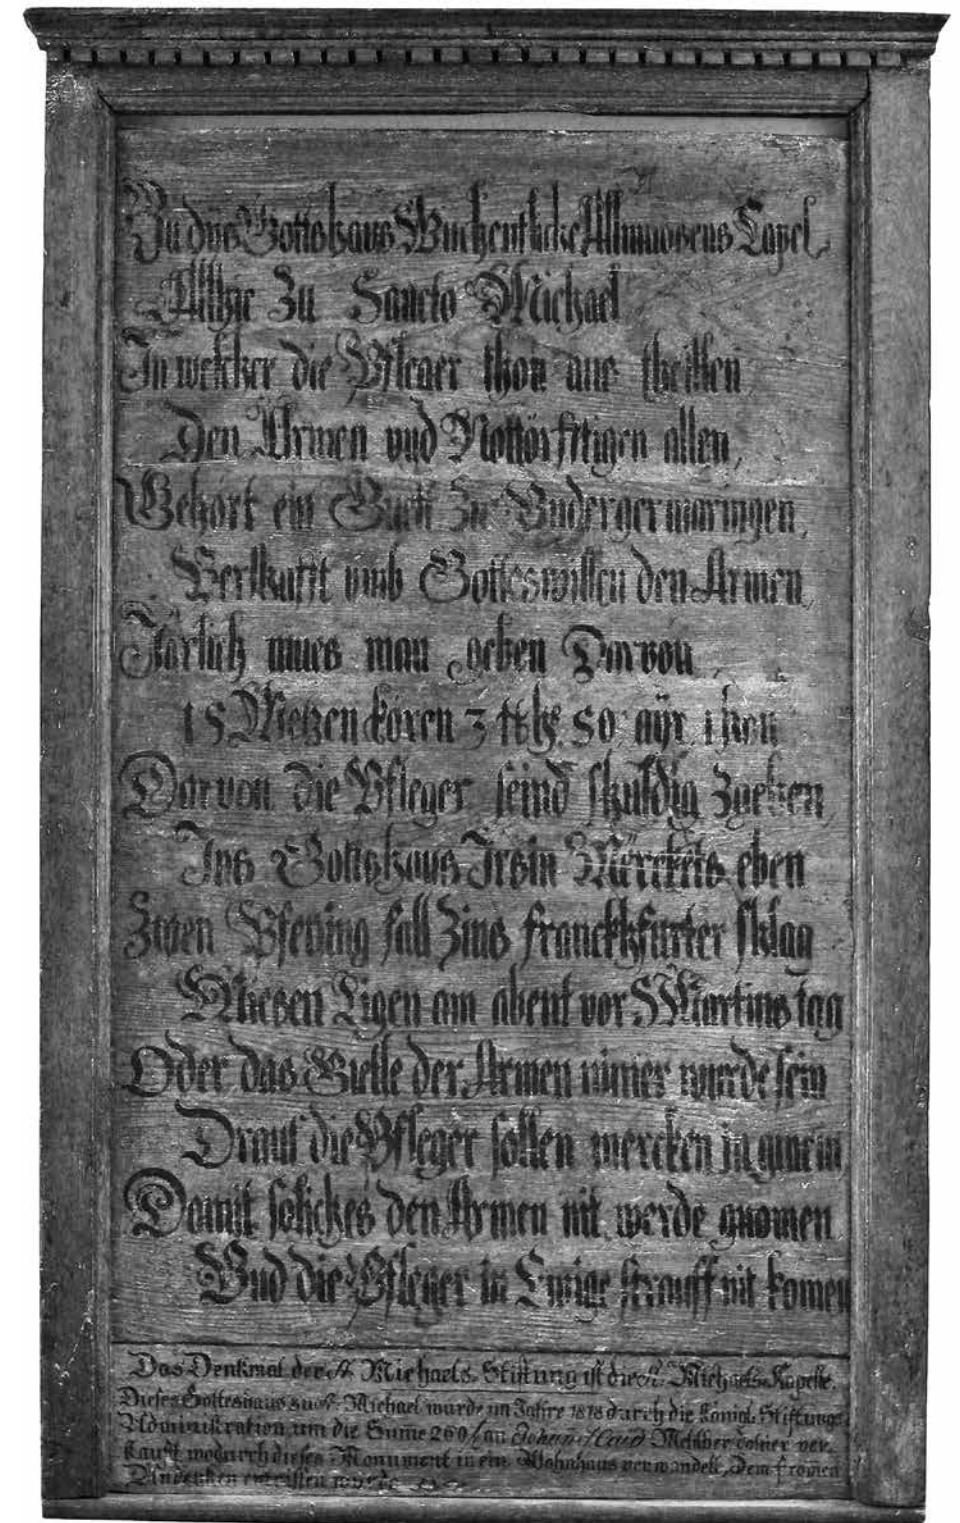 Zu dys Gottshaus Wuchentliche Allmuosens Capel
Allhie Zu Sancto Michael
In welcher die Pfleger thon aus theillen
Den Armen vnd Nottörfftigen allen,
Gehört ein Guett Zu Vndergermaringen,
Verschafft vmb Gotteswillen den Armen,
Järlich mues man geben Darvon
15 Metzen koren 50 ayr
Darvon die Pfleger seind schuldig zgeben,
Ins Gottshaus Irsin Merckets eben
Zwen Pfening fall Zins franckhfurter schlag
Miesen Ligen am abent vor Martins tag
Oder das Guette der Armen nimer wurde sein
Drauf die Pfleger sollen mercken in gmein
Damit solches den Armen nit werde gnomen
Vnd die Pfleger in Ewige strauff nit komen
Das Denkmal der St. Michaels Stiftung ist die St. Michaels Kapelle.
Dieses Gotteshaus zu St. Michael wurde im Jahre 1818 durch die Königl. Stiftungs
Administration um die Sume 260 f an Metzber dahier ver-
kauft wodurch dieses Monument in ein Wohnhaus verwandelt, Dem fromen
Andenken entrissen wurde